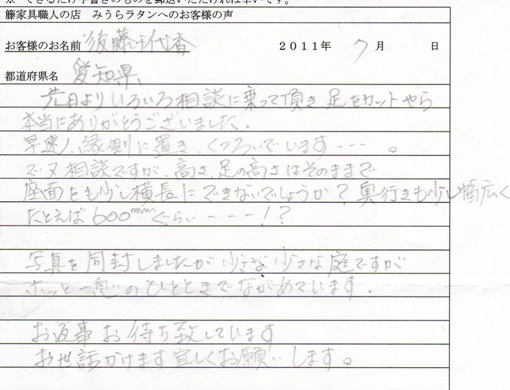 ※ できるだけ手書きのものを郵送いただければ幸いです。
籐家具職人の店 みうらラタンへのお客様の声
お客様のお名前 後藤千代香 2011年 7月 日
都道府県名 愛知県
先日よりいろいろ相談に乗って頂き足をカットやら
本当にありがとうございました.
早速、縁側に置き、くつろいでいます---。
で又相談ですが、高さ、足の高さはそのままで
座面をも少し横長にできないでしょうか?奥行きも少し幅広く
たとえば600mmぐらい----!?
写真を同封しましたが 小さな庭ですが
ホッと一息のひとときでながめています.
お返事お待ち致しています
お世話かけます宜しくお願いします。